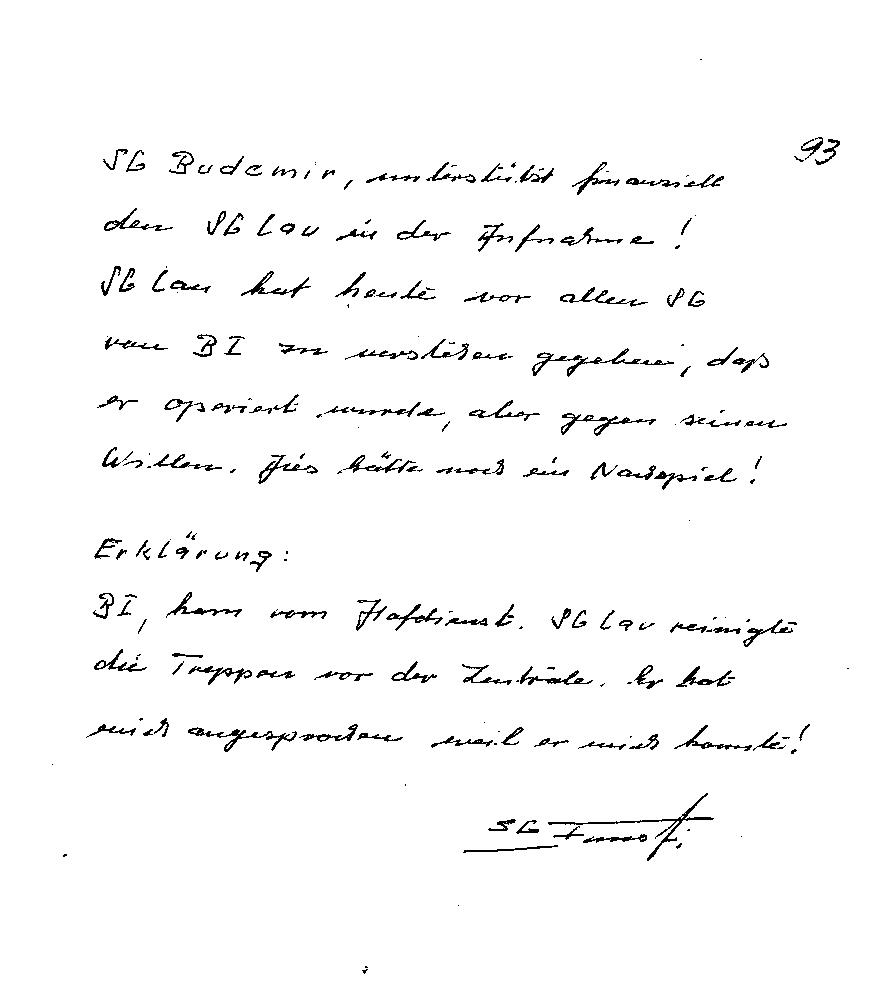 93
SG Budemir, unterstützt finanziell
den SG Lau in der Aufnahme!
SG Lau hat heute vor allen SG
von BI zu verstehen gegeben, daß
er operiert wurde, aber gegen seinen
Willen. Dies hätte noch ein Nachspiel!
Erklärung:
BI, kam vom Hofdienst. SG Lau reinigte
die Treppen vor der Zentrale. Er hat
mich angesprochen weil er mich kannte!
SG